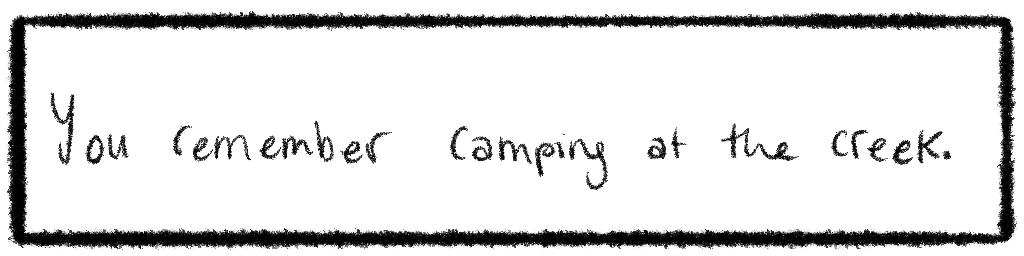 You remember camping at the creek.